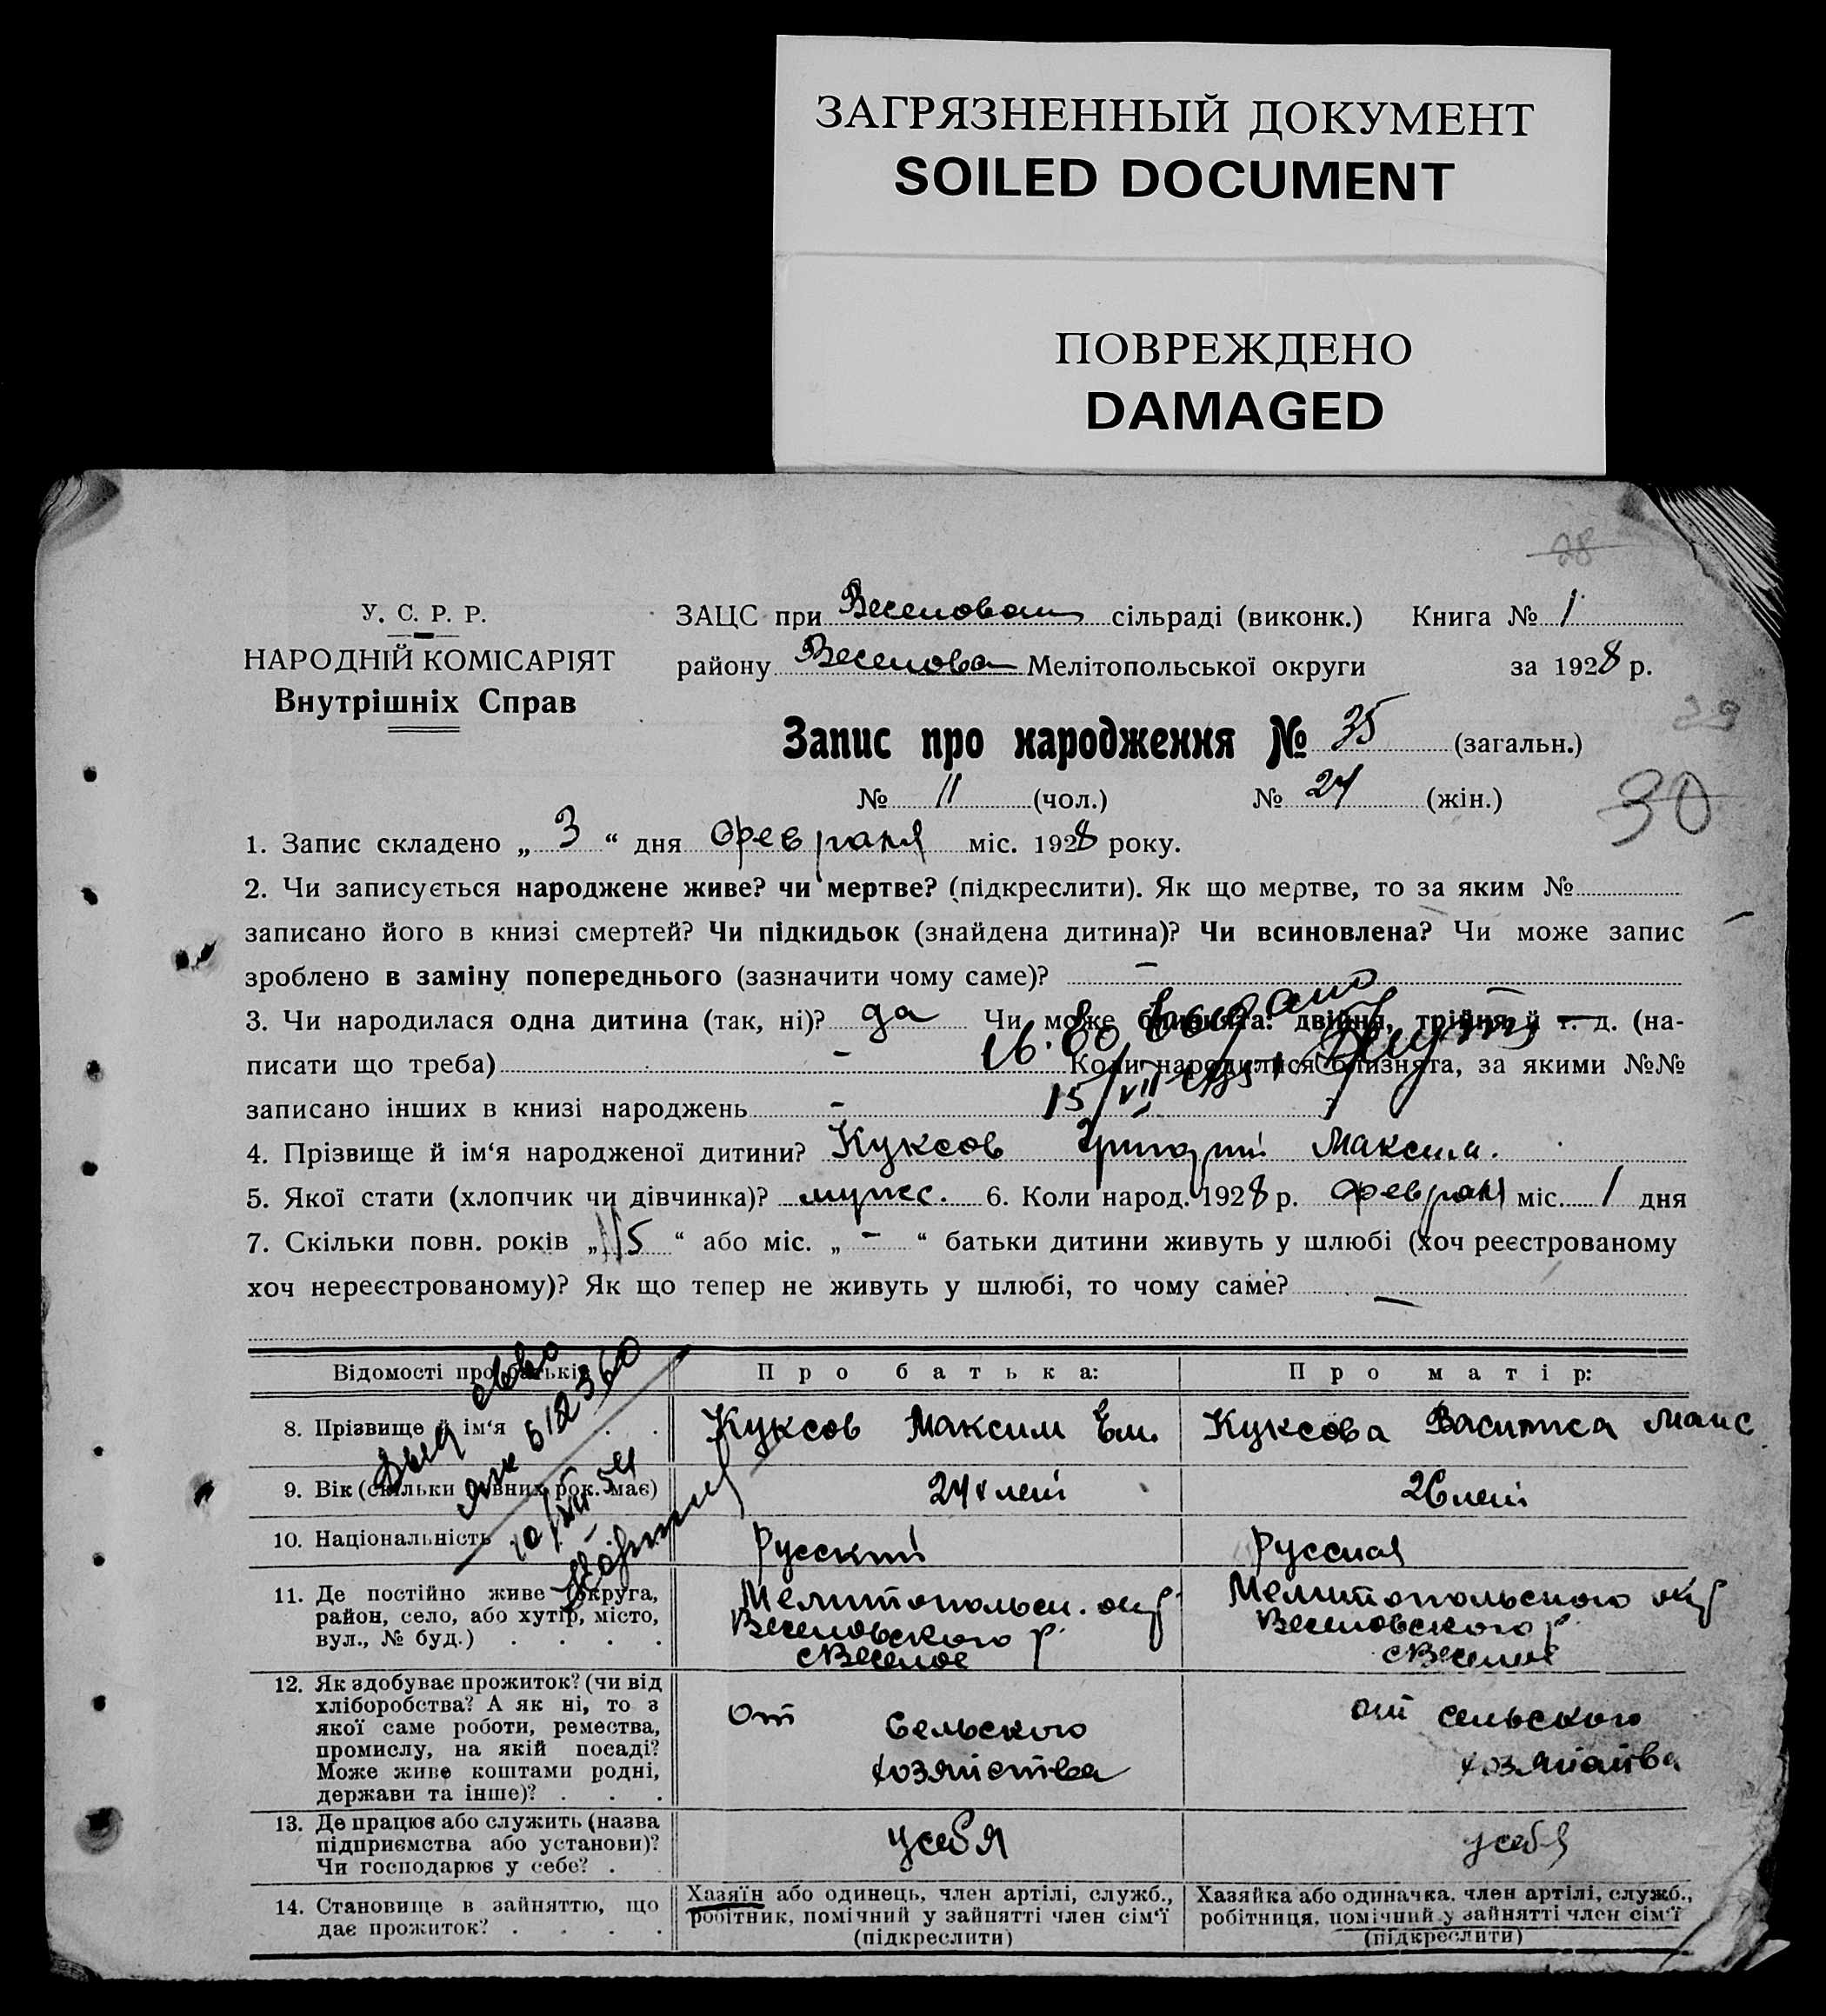 ЗАГРЯЗНЕННЫЙ ДОКУМЕНТ
SOILED DOCUMENT
ПОВРЕЖДЕНО
DAMAGED
28
У. С. Р. Р.
НАРОДНІЙ КОМІСАРІЯТ
Внутрішніх Справ
ЗАЦС при Веселовом сільраді (виконк.) Книга № 1
району Веселова Мелітопольської округи за 1928 р.
29
Запис про народження № 35 (загальн.)
№ 11 (чол.) № 24 (жін.)
30
1. Запис складено „ 3 “ дня Февраля міс. 1928 року.
2. Чи записується народжене живе? чи мертве? (підкреслити). Як що мертве, то за яким №
записано його в книзі смертей? Чи підкидьок (знайдена дитина)? Чи всиновлена? Чи може запис
зроблено в заміну попереднього (зазначити чому саме)? –
3. Чи народилася одна дитина (так, ні)? да Чи може близнята: двійня, трійня й т. д. (на-
писати що треба) – Коли народилися близнята, за якими №№
записано інших в книзі народжень –
15/VII
4. Прізвище й ім‘я народженої дитини? Куксов Григорий Максим.
5. Якої стати (хлопчик чи дівчинка)? мужс. 6. Коли народ. 1928 р. Февраля міс. 1 дня
7. Скільки повн. років „ 5 “ або міс. „ – “ батьки дитини живуть у шлюбі (хоч реєстрованому
хоч нереєстрованому)? Як що тепер не живуть у шлюбі, то чому саме? –
Відомості про батьків Про батька: Про матір:
8. Прізвище й ім‘я . . Куксов Максим Ем. Куксова Василиса Макс.
9. Вік (скільки повних рок. має) 24 лет 26 лет
10. Національність Русский Русская
11. Де постійно живе (округа,
район, село, або хутір, місто,
вул., № буд.) . . . .
Мелитопольск. окр
Веселовского р.
с Веселое
Мелитопольского окр
Веселовского р.
с Веселое
12. Як здобуває прожиток? (чи від
хліборобства? А як ні, то з
якої саме роботи, ремества,
промислу, на якій посаді?
Може живе коштами родні,
держави та інше)? . . .
От сельского
хозяйства
от сельского
хозяйства
13. Де працює або служить (назва
підприємства або установи)?
Чи господарює у себе? . .
у себя
у себя
14. Становище в зайняттю, що
дає прожиток? . . . .
Хазяїн або одинець, член артілі, служб.,
робітник, помічний у зайнятті член сім‘ї
(підкреслити)
Хазяйка або одиначка, член артілі, служб.,
робітниця, помічний у зайнятті член сім‘ї
(підкреслити)